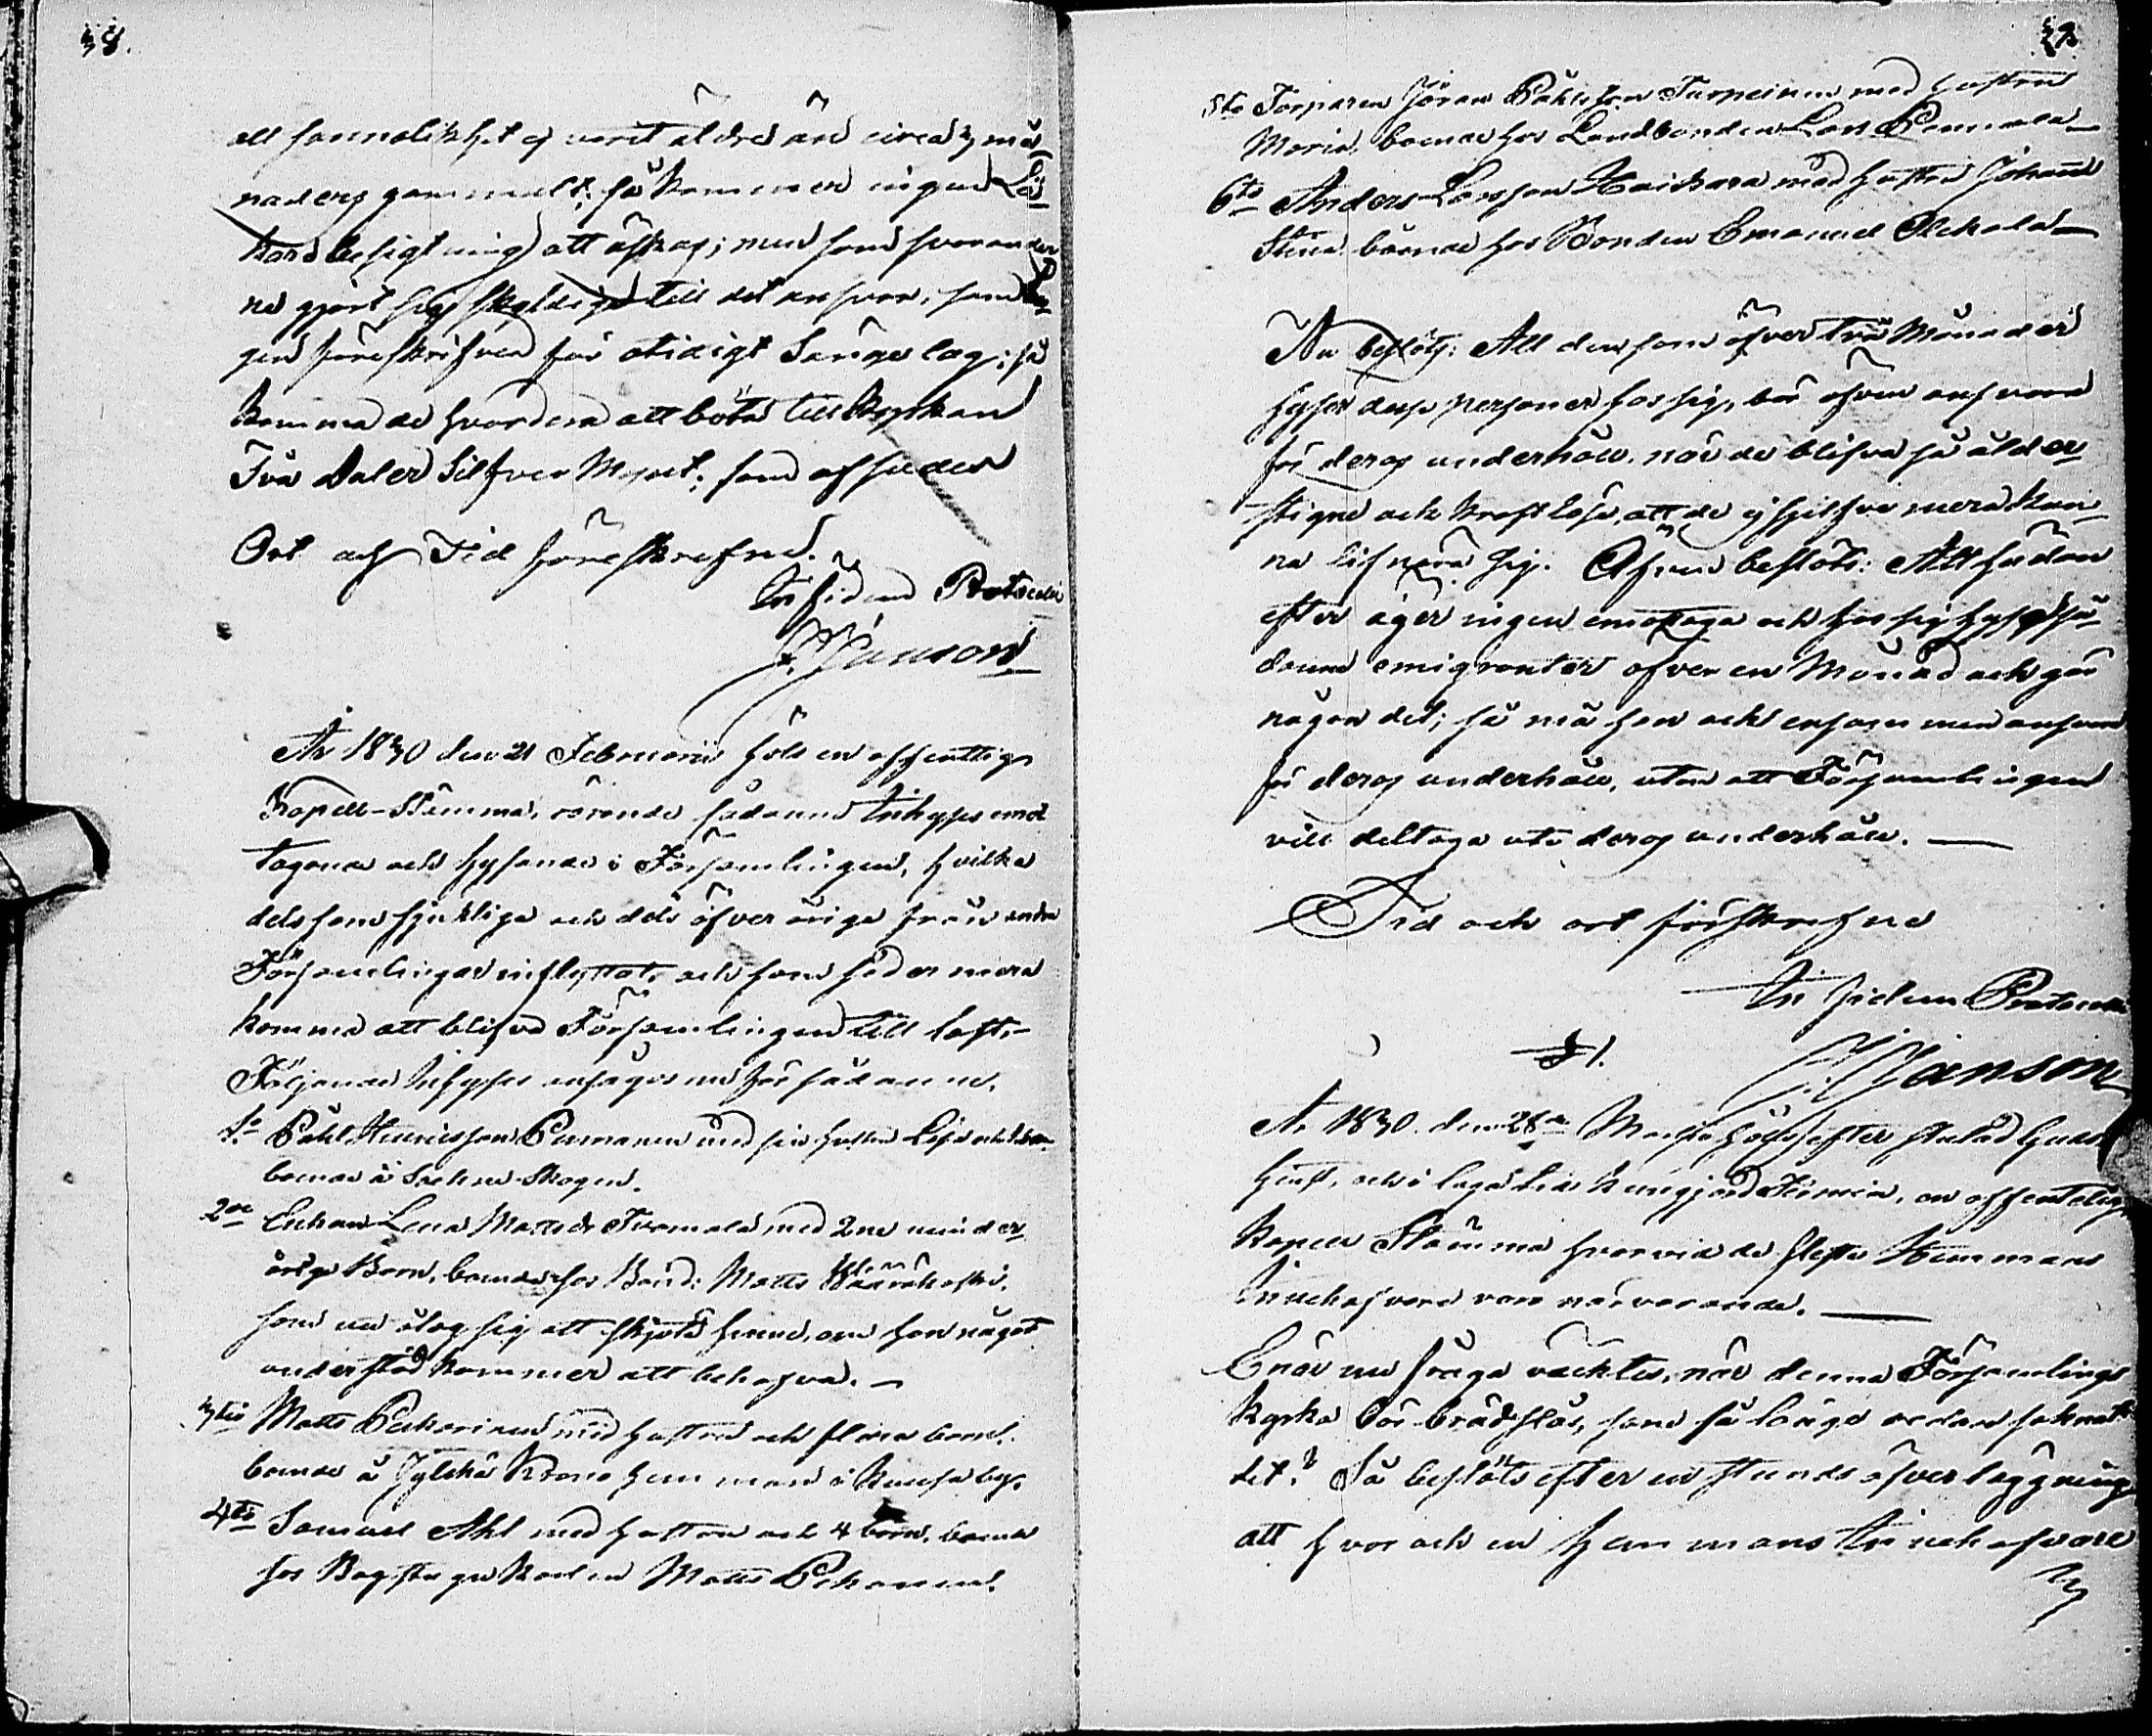 all sannolikhet ej varit äldre än circa 3 må-
naders gammalt; så kommer ingen Lä-
kare besigtning att äskas; men som svarander
ne gjort sig skyldige till det ansvar, som
gen föreskrifver för otidigt Sängelag; så
komma de hvardera att böta till Kyrkan
Två Daler Silfver Mynt; som afsades
Ort och Tid föreskrefne.
In fidem Protocolli
J. Janson
År 1830 den 21 Februarii höls en offentlig
Kapell-Stämma, rörande sådanne Inhyses emot
tagande och hysande i Församlingen, hvilka
dels som sjukliga och dels öfver åriga från andra
Församlingar inflyttat, och som sedermera
komma att blifva Församlingen till last.-
Följande Inhyses ansågos nu för sådanne.
1o Påhl Henricsson Permanen med sin hustru Lisa och barn
boende å Sockne Skogen.
2do Enkan Lena Matts dr Tuomala med 2ne minder
åriga Barn, boende hos Bond: Matts
som nu åtog sig att sköta henne, om hon något
understöd kommer att behöfva. -
3tio Matts Pekarinen med hustru och flera barn
boende å Jylchä Krono hemman i by.
4to Samuel Ahl med hustru och 4 barn, boende
hos Matts Pekarinen.
5to Torparen Jöran Påhlsson Turpeinen med hustru
Maria, boende hos Landbonden Lars Pennala -
6to Anders Larsson Haikara med hustru Johanna
Stina boende hos Bonden Emanuel Alckala -
Nu beslöts: Att den som öfver två Månader
hyser desse personer hos sig, bör äfven ansvara
för deras underhåll, när de blifva så ålder
stigne och kraftlöse, att de ej sjelfve mera kun-
na lifnära sig. Äfven beslöts: Att hädan
efter äger ingen emottaga och hos sig hysa så-
danne emigranter öfver en Månad och gör
någon det; så må han ock ensam men ansvara
för deras underhåll, utan att Församlingen
vill deltaga uti deras underhåll. -
Tid och ort förskrefne
In fidem Protocolli
J. Janson
§ 1.
År 1830. den 28de Martii höls, efter slutad Guds
tjenst, och i laga tid kungjord Termin, en offentelig
Kapell Stämma hvarvid de fleste Hemmans
Innehafvare voro närvarande. -
Enär nu fråga väcktes, när denna Församlings
kyrka bör brädslås, som så länge redan saknat
det? Så beslöts efter en stunds öfverläggning
att hvar och en hemmans Innehafvare